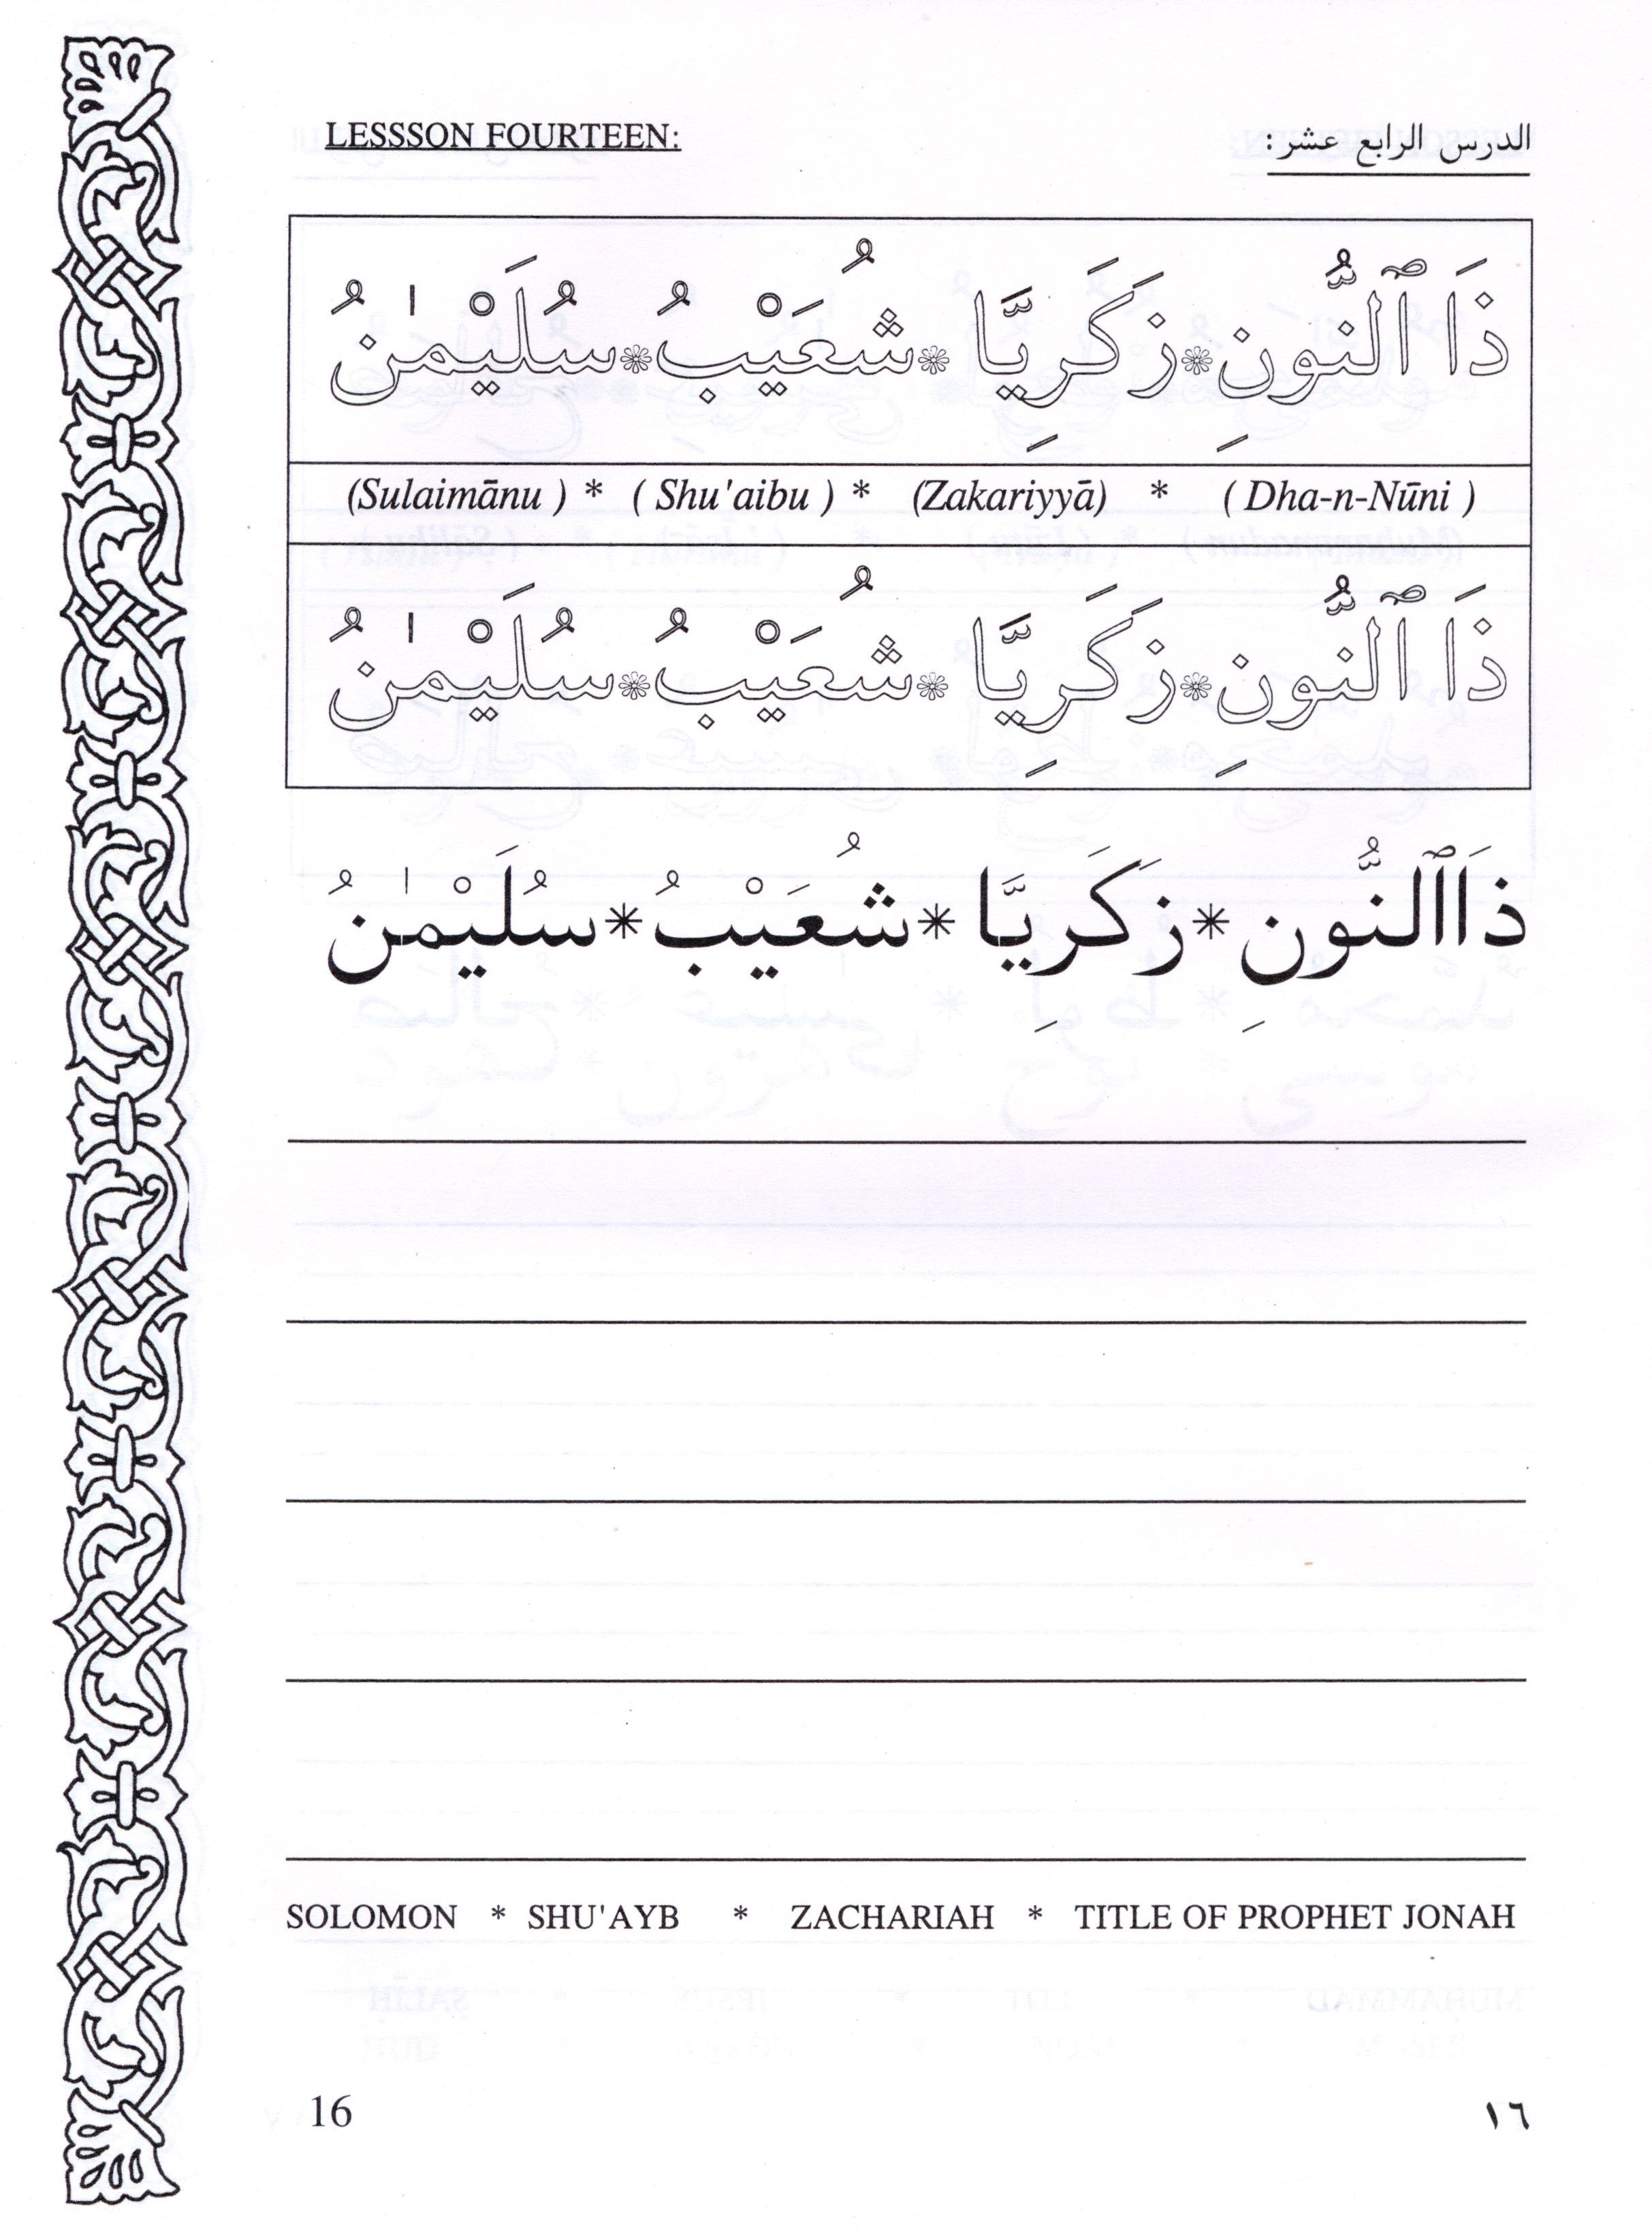 LESSSON FOURTEEN: الدرس الرابع عشر:
ذَا ٱلنُّونِ * زَكَرِيَّا * شُعَيْبُ * سُلَيْمَٰنُ
(Sulaimānu ) * ( Shu'aibu ) * (Zakariyyā) * ( Dha-n-Nūni )
ذَا ٱلنُّونِ * زَكَرِيَّا * شُعَيْبُ * سُلَيْمَٰنُ
ذَاٱلنُّونِ * زَكَرِيَّا * شُعَيْبُ * سُلَيْمَٰنُ
SOLOMON * SHU'AYB * ZACHARIAH * TITLE OF PROPHET JONAH
16 ١٦